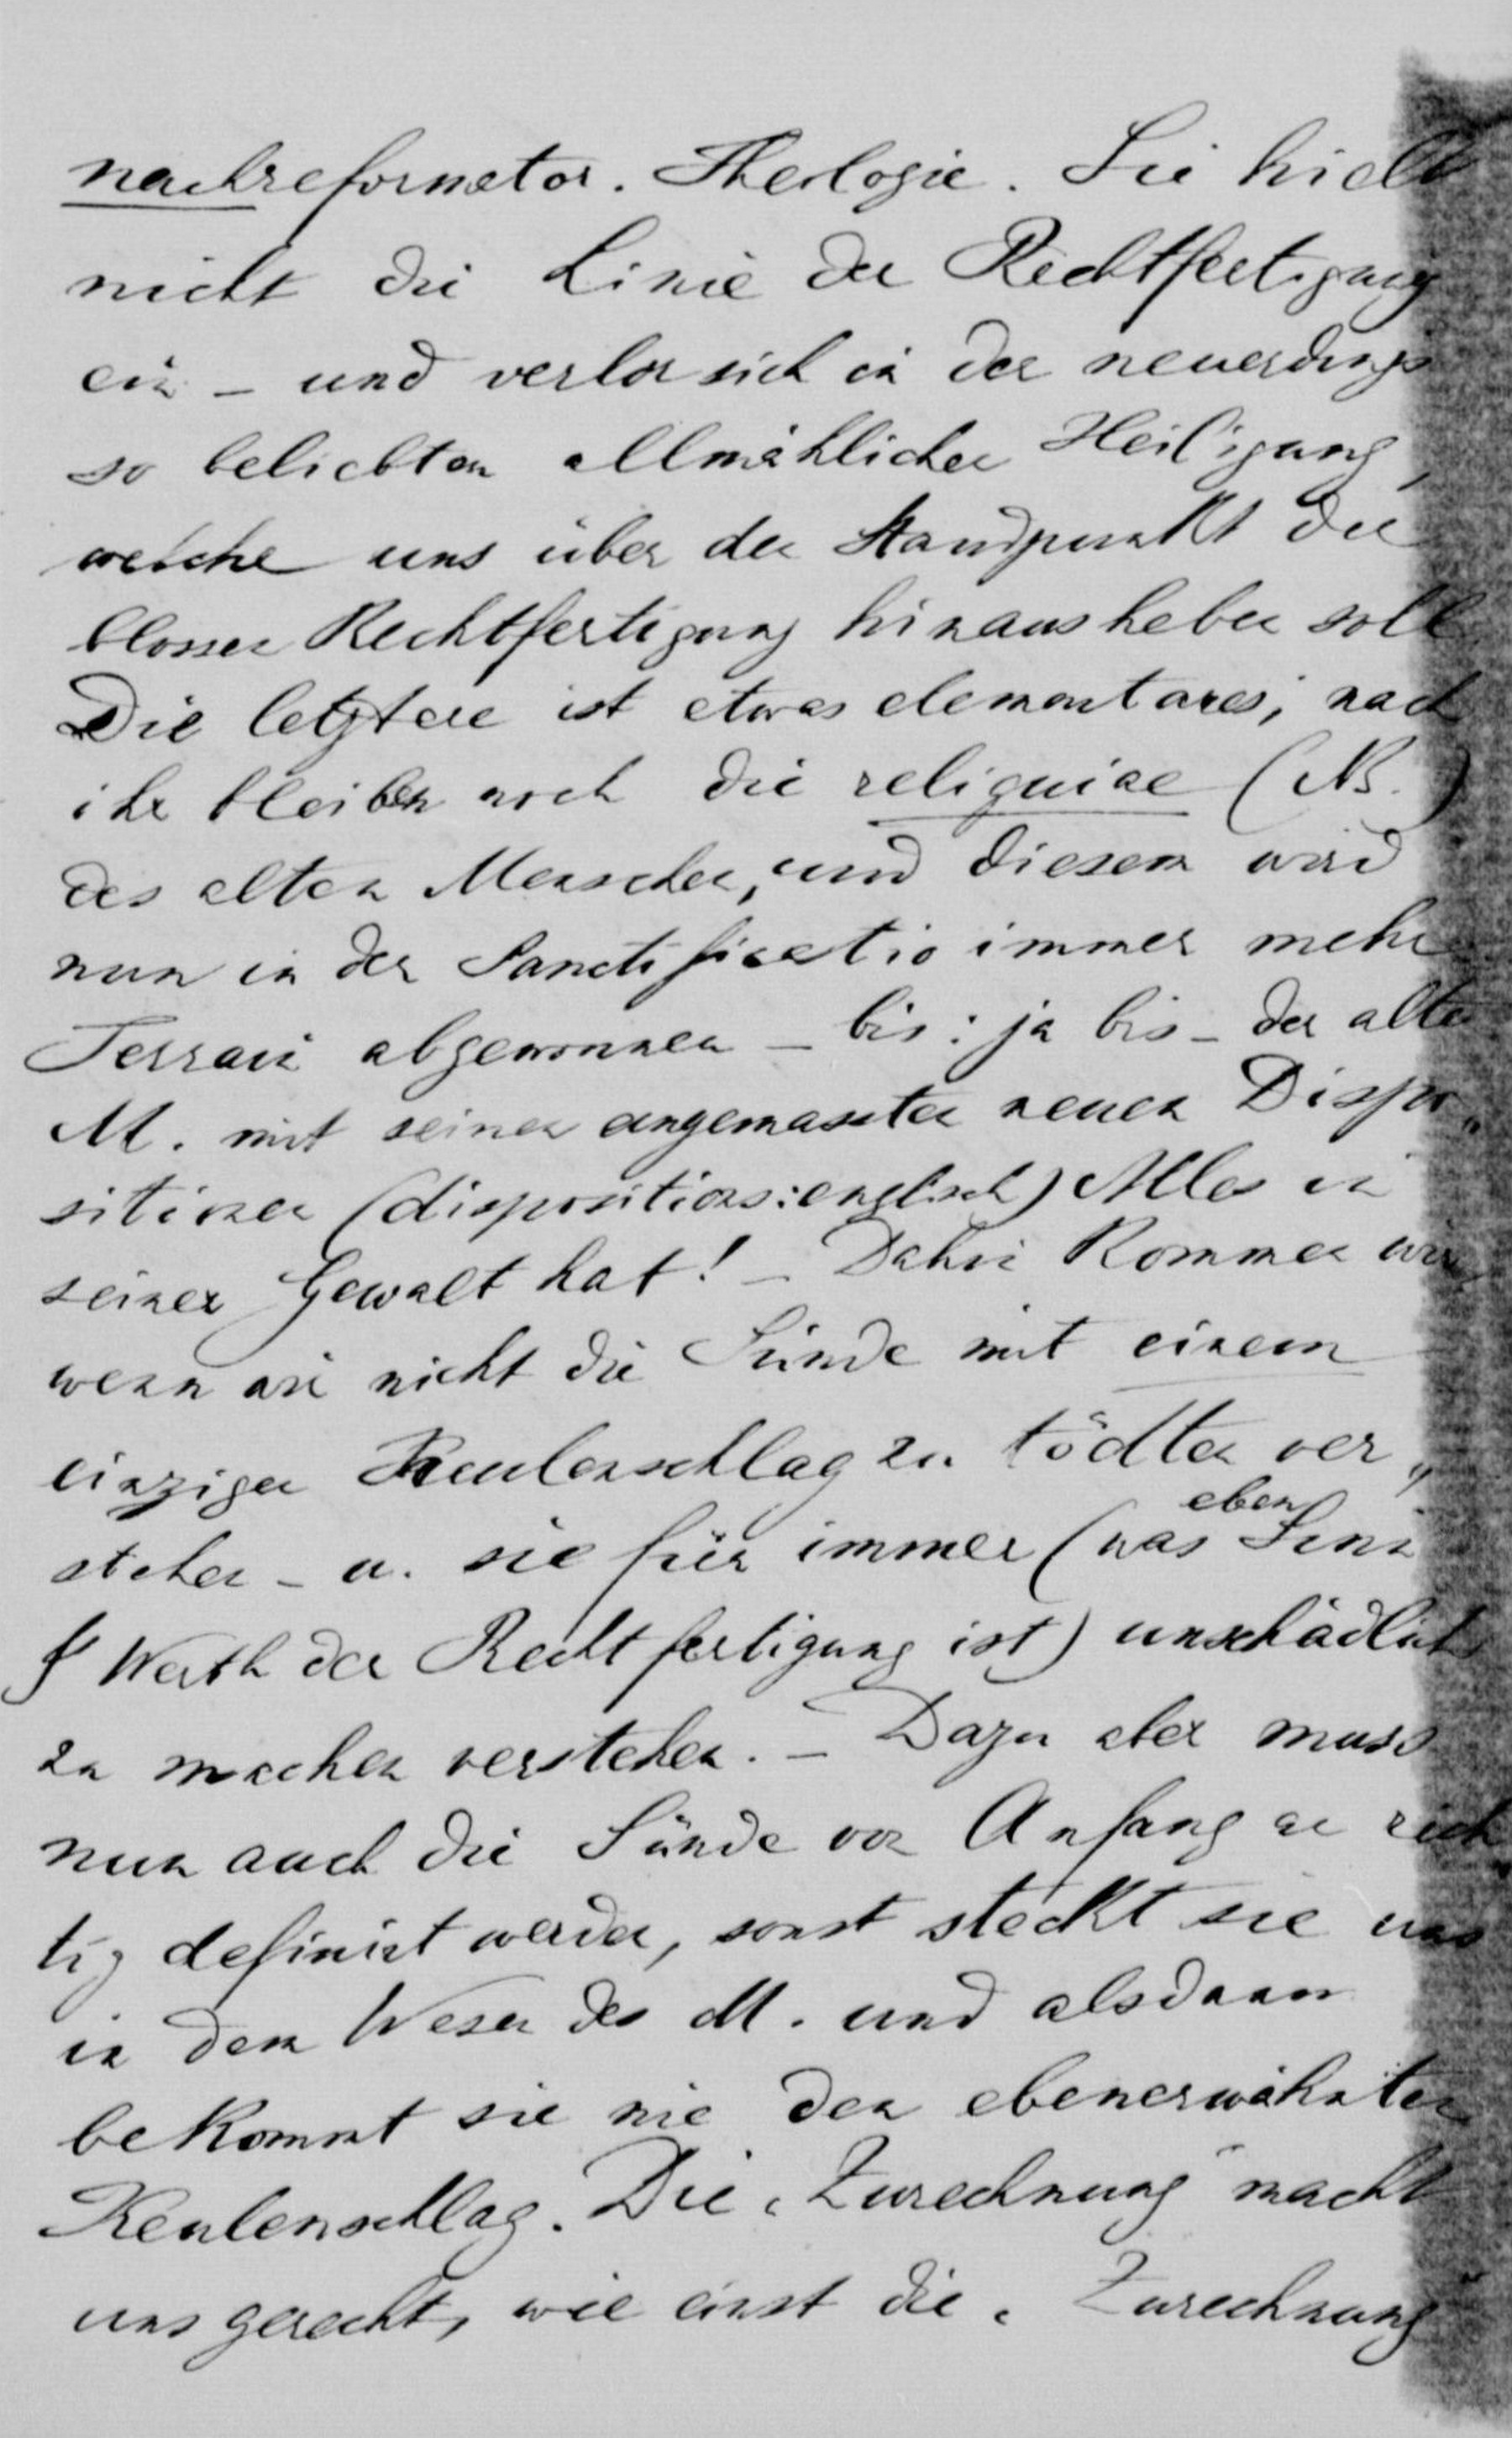 nachreformator. Theologie. Sie hielt
nicht die Linie der Rechtfertigung
ein – und verlor sich in der neuerdings
so beliebten allmählichen Heiligung,
welche uns über den Standpunkt der
blossen Rechtfertigung hinausheben soll.
Die letztere ist etwas elementares; nach
ihr bleiben noch die reliquiae (NB.)
des alten Menschen, und diesem wird
nun in der Sanctificatio immer mehr
Terrain abgewonnen – bis: ja bis – der alte
M. mit seinen angemassten neuen Dispo„
sitionen (dispositions: englisch) Alles in
seiner Gewalt hat! – Dahin kommen wir
wenn wir nicht die Sünde mit einem
einzigen Keulenschlag zu tödten ver„
stehen – u. sie für immer (was eben Sinn
& Werth der Rechtfertigung ist) unschädlich
zu machen verstehen. – Dazu aber muss
nun auch die Sünde von Anfang an rich
tig definirt werden, sonst steckt sie uns
in dem Wesen des M. und alsdann
bekommt sie nie den ebenerwähnten
Keulenschlag. Die „Zurechnung" macht
uns gerecht, wie einst die „Zurechnung